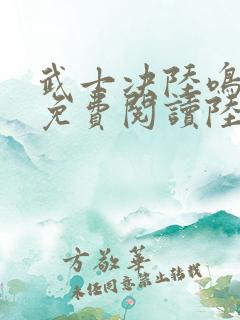 武士决陸鳴
免費閱讀陸
方敬華
未經同意禁止轉載